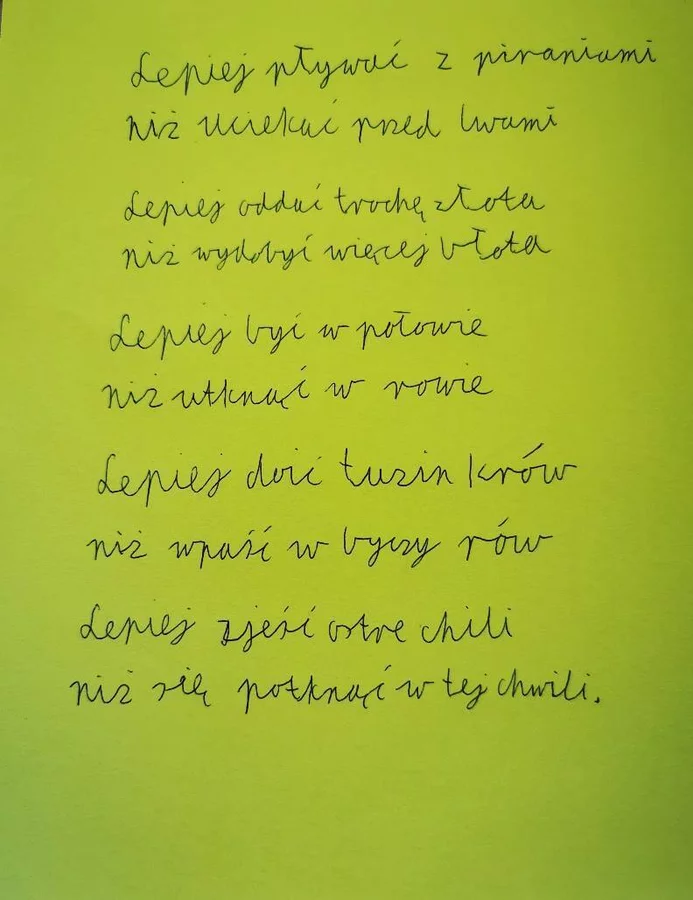 Lepiej pływać z piraniami
niż uciekać przed lwami
Lepiej oddać trochę złota
niż wydobyć więcej błota
Lepiej być w połowie
niż utknąć w rowie
Lepiej doić tuzin krów
niż wpaść w byczy rów
Lepiej zjeść ostre chili
niż się potknąć w tej chwili.